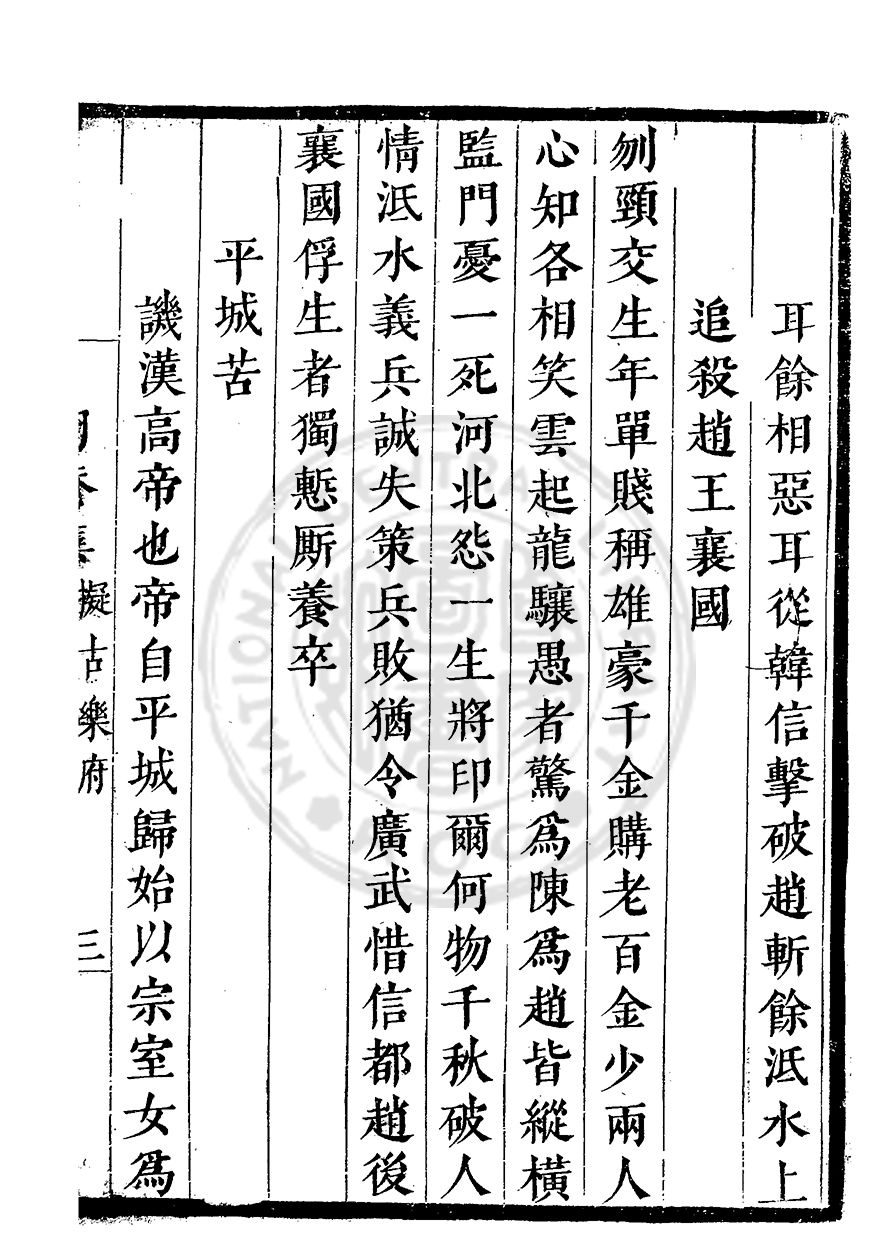 耳餘相惡耳從韓信擊破趙斬餘泜水上
追殺趙王襄國
刎頸交生年單賤稱雄豪千金購老百金少兩人
心知各相笑雲起龍驤愚者驚為陳為趙皆縱橫
監門憂一死河北怨一生將印爾何物千秋破人
情泜水義兵誠失策兵敗猶令廣武惜信都趙後
襄國俘生者獨慙厮養卒
平城苦
譏漢高帝也帝自平城歸始以宗室女為
擬古樂府
三